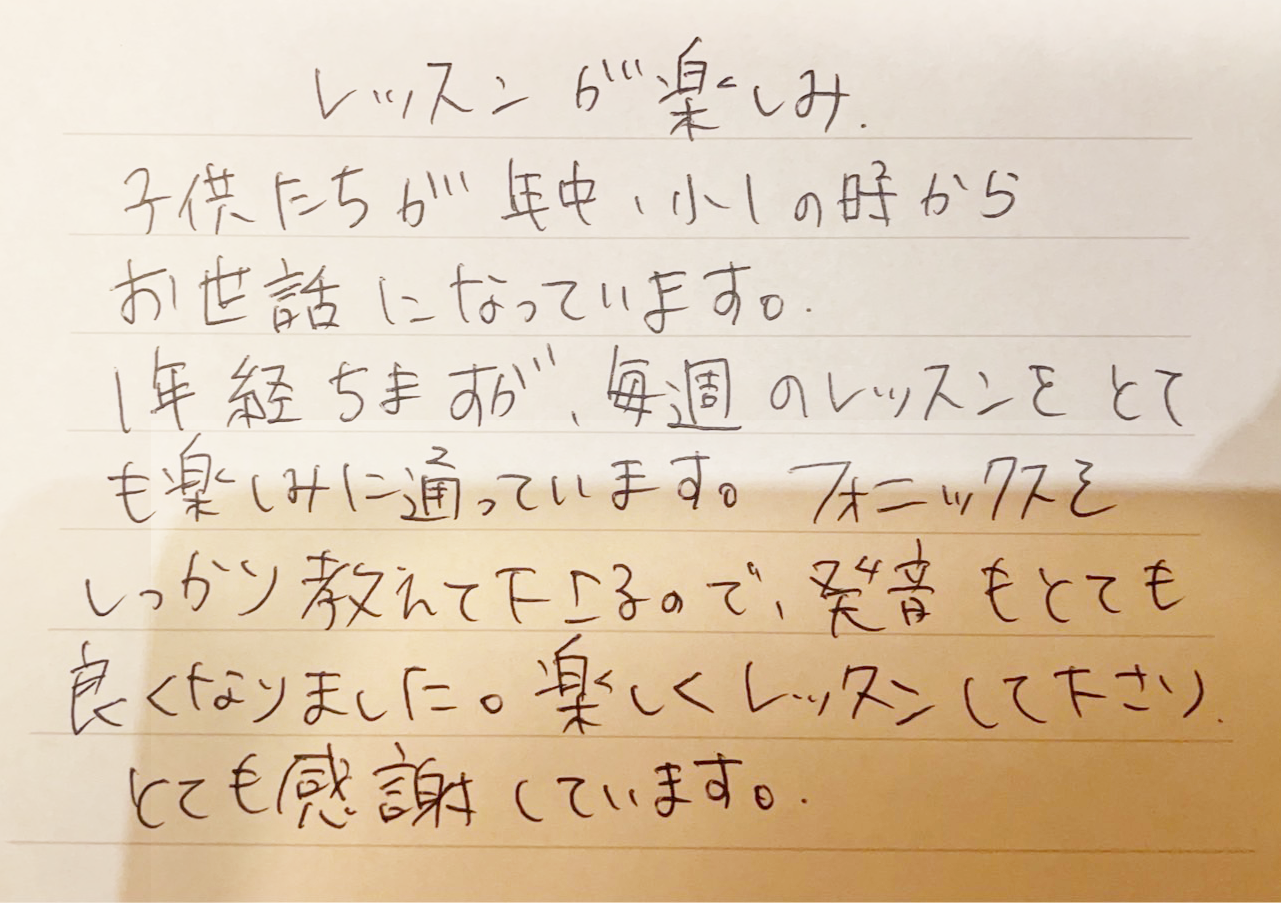 レッスンが楽しみ.
子供たちが年中、小1の時から
お世話になっています。
1年経ちますが、毎週のレッスンをとて
も楽しみに通っています。フォニックスを
しっかり教えて下さるので、発音もとても
良くなりました。楽しくレッスンして下さり、
とても感謝しています。